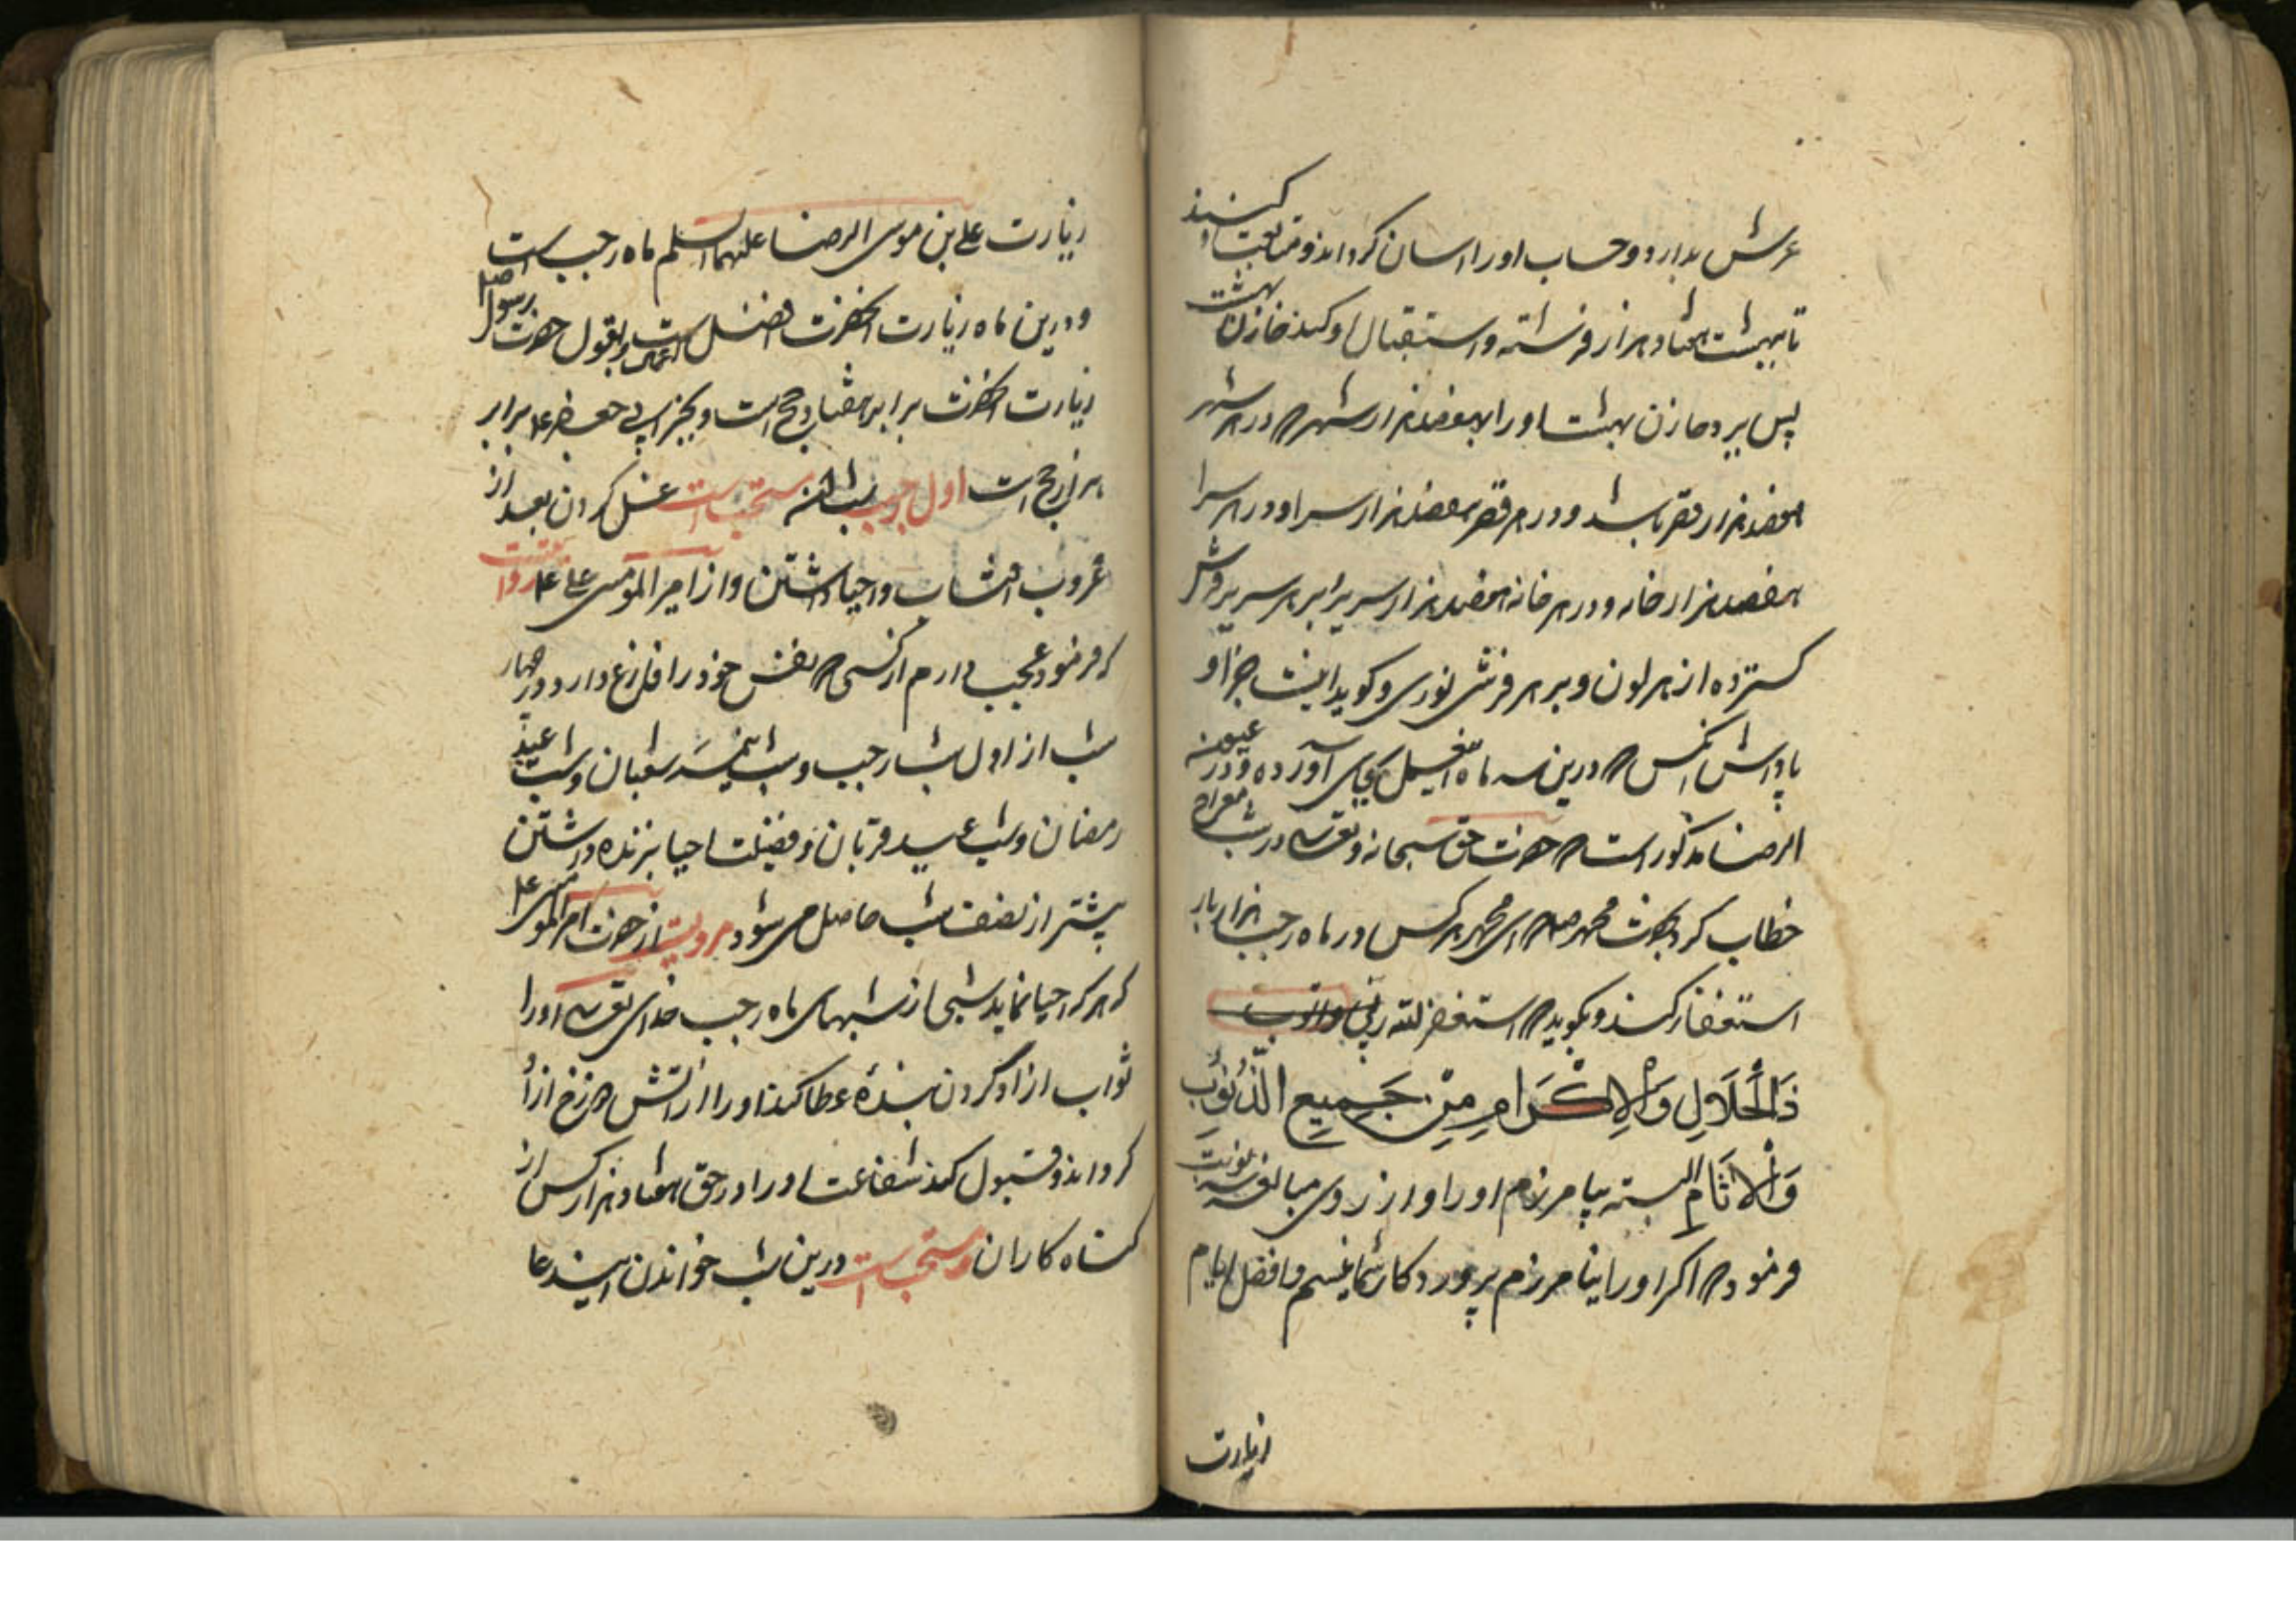 عرش بدارد و حساب او را اسان کرداند و متابعت او کنند
تا بهشت هفتاد هزار فرشته و استقبال او کند خازنان بهشت
پس برد خازن بهشت او را بهفصد هزار شهر که در هر شهر
هفصد هزار قصر باشد و در هر قصر هفصد هزار سرا و در هر سرا
هفصد هزار خانه و در هر خانه هفصد هزار سریر برابر هر سریر فرش
کسترده از هر لون و بر هر فرشی نوری و کوید اینست جزا و
پاداش انکس که درین سه ماه این عمل بجای آورده و در عیون
الرضا مذکور است که حضرت حق سبحانه و تعالی در شب معراج
خطاب کرد بحضرت محمد صلم که ای محمد هر کس در ماه رجب هزار بار
استغفار کند و بکوید که استغفر الله ربی واتوب
ذَالْجَلَالِ وَالْاِكْرَامِ مِنْ جَمِيعِ الذُّنُوبِ
وَالْاثَامِ البته بیامرزم او را و از روی مبالغه سه نوبت
فرمود که اکر او را نیامرزم پروردکار شما نیستم و افضل ایام
زیارت
زیارت علی بن موسی الرضا علیهما السلم ماه رجب است
و درین ماه زیارت انحضرت افضل اعمال است و بقول حضرت رسول صلم
زیارت انحضرت برابر هفتاد حج است و بخبر اصح جعفر ع م برابر
هزار حج است اول رجب شب اللّه مستحب است غسل کردن بعد از
غروب افتاب و احیا داشتن و از امیر المومنین علی ع م روایت است
که فرمود عجب دارم از کسی که نفس خود را فارغ دارد در چهار
شب از اول شب رجب و شب نیمۀ شعبان و شب عید
رمضان و شب عید قربان و فضیلت احیا بزنده داشتن
پیشتر از نصف شب حاصل می شود مرویست از حضرت امیر المومنین ع م
که هر که احیا نماید شبی از شبهای ماه رجب خدای تعالی او را
ثواب ازاد کردن بندۀ عطا کند او را از اتش دوزخ ازاد
کرداند و قبول کند شفاعت او را در حق هفتاد هزار کس از
کناه کاران و مستحب است درین شب خواندن این دعا